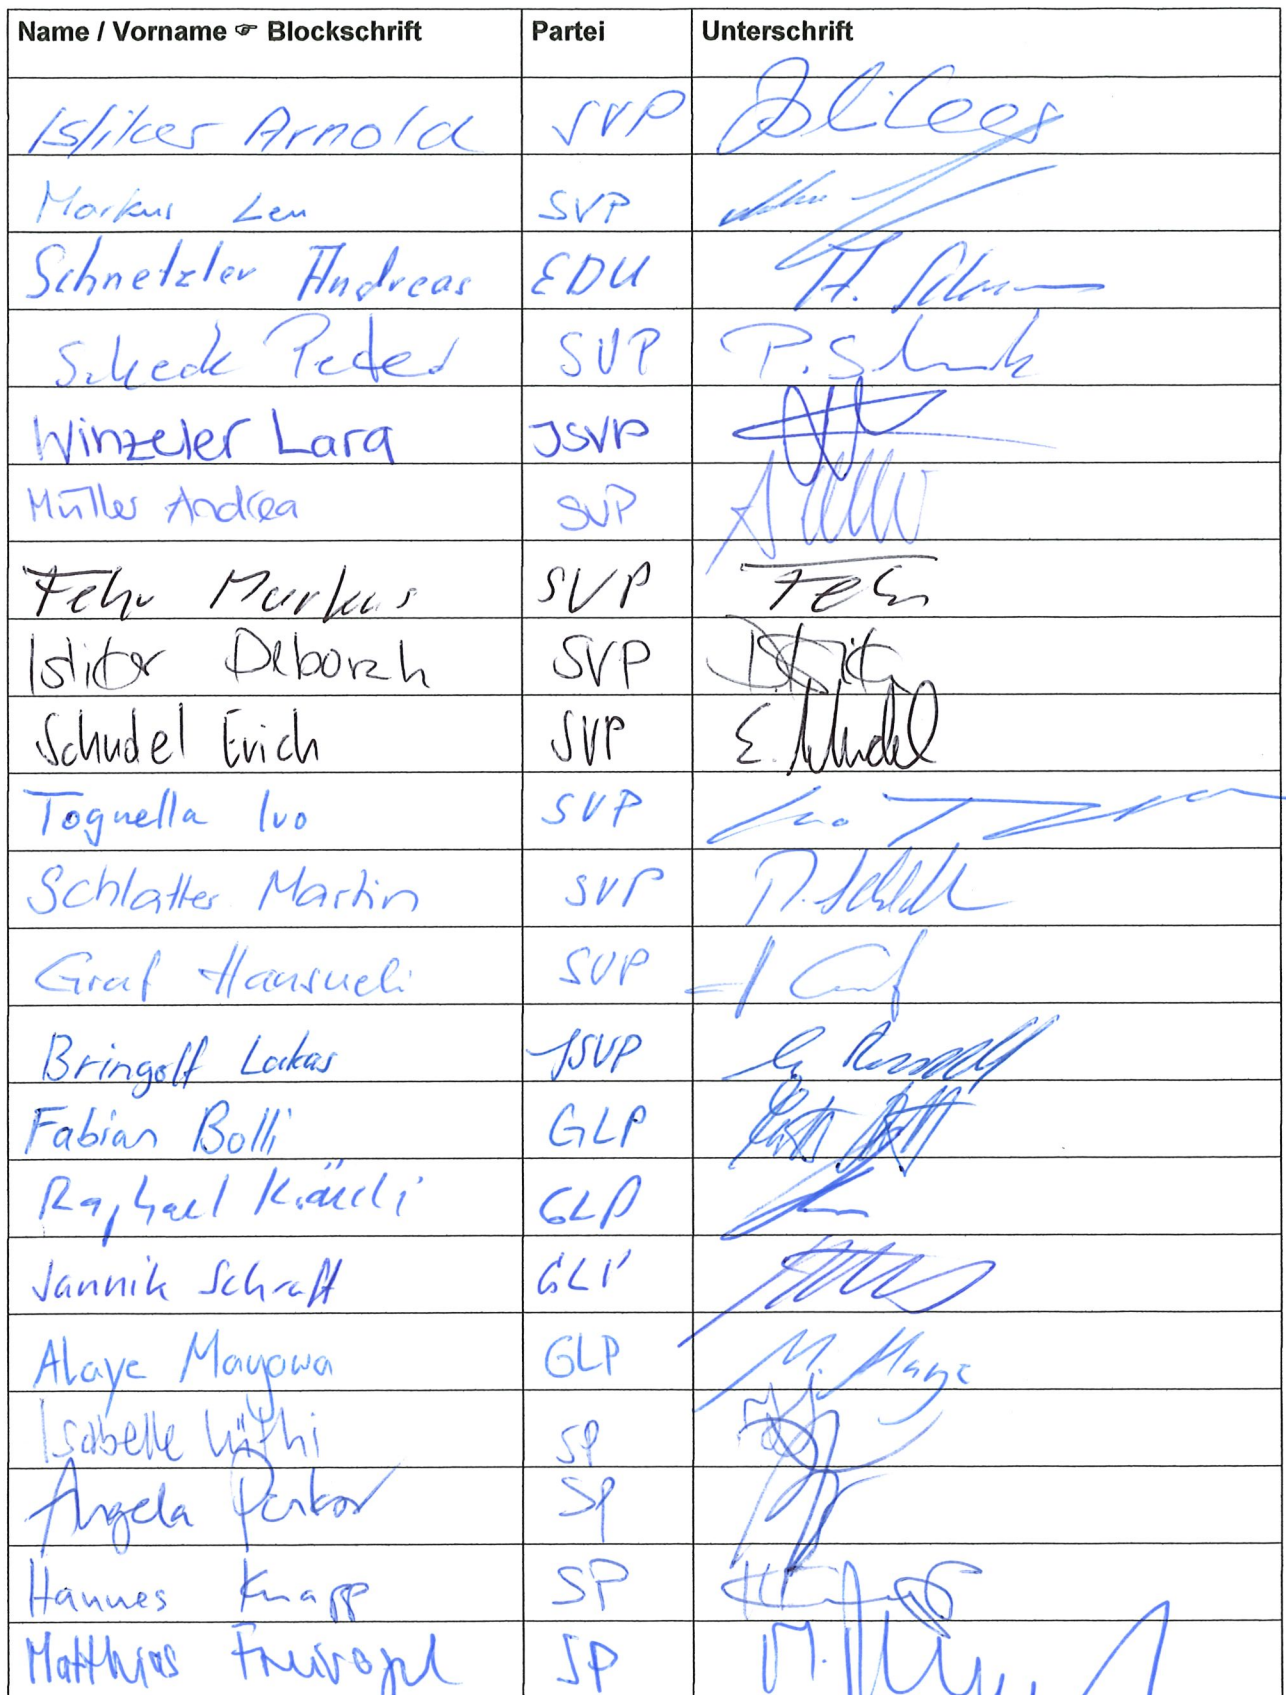 Name / Vorname ☞ Blockschrift Partei Unterschrift
Isliker Arnold SVP
Markus Leu SVP
Schnetzler Andreas EDU A.
Scheck Peter SVP P. Scheck
Winzeler Lara JSVP
Müller Andrea SVP
Fehr Markus SVP Fehr
Isliker Deborah SVP
Schudel Erich SVP E. Schudel
Tognella Ivo SVP Ivo
Schlatter Martin SVP M. Schlatter
Graf Hansueli SVP H Graf
Bringolf Lukas JSVP
Fabian Bolli GLP
Raphael Kräuchi GLP
Jannik Schraff GLP
Alaye Mayowa GLP M. Alaye
Isabelle Lüthi SP
Angela Penkov SP
Hannes Knapp SP
Matthias Freivogel SP M.